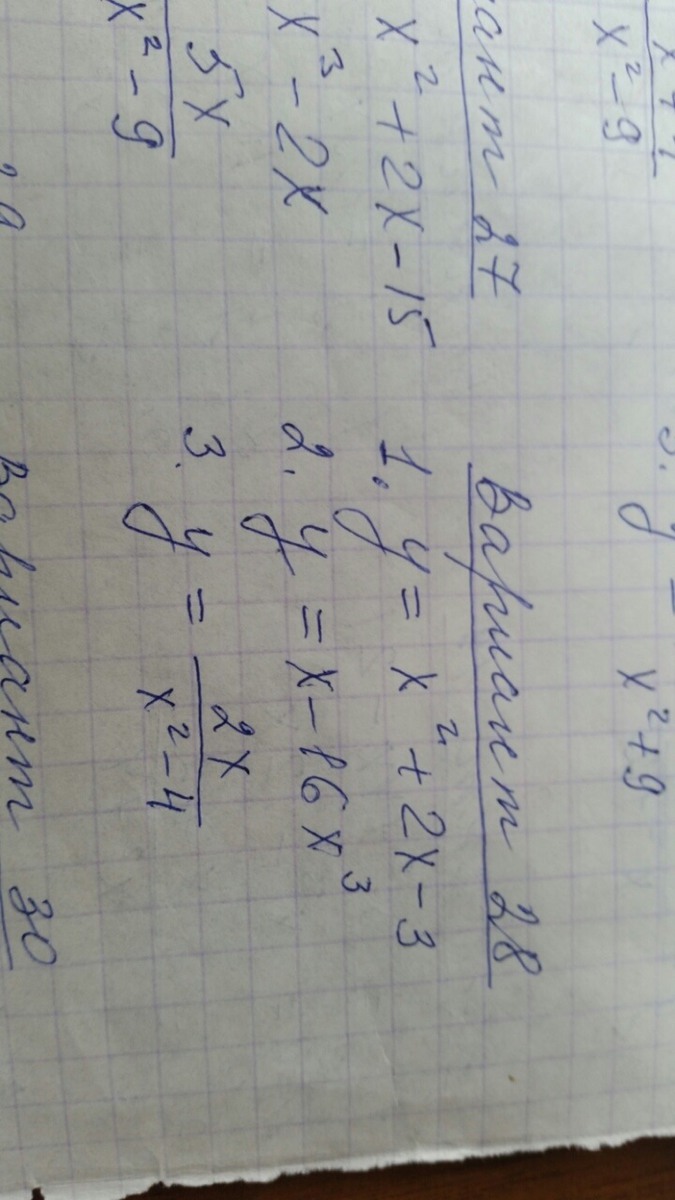 x² - 9
ант 27
x² + 2x - 15
x³ - 2x
5x
x² - 9
3. y =
x² + 9
Вариант 28
1. y = x² + 2x - 3
2. y = x - 16x³
3. y = 2x
x² - 4
Вариант 30